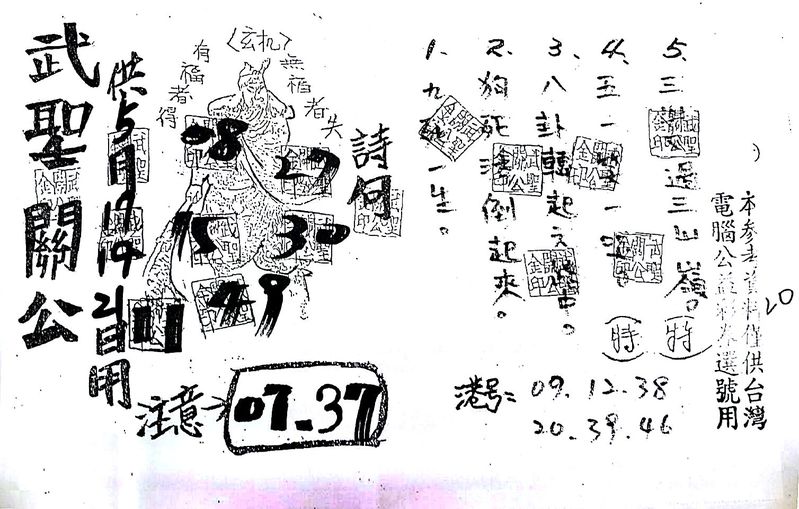 武聖關公
供5月17 19 21日用
〈玄机〉
有福者得
無福者失
08
27
15
30
49
11
詩句
注意
07-37
1. 九死一生。
2. 狗死 倒起來。
3. 八卦轉起
4. 五一 一 (特)
5. 三 過三 嶺。(特)
港号: 09.12.38
20.39.46
20
本參考資料僅供台灣
電腦公益彩券選號用
武聖關公金印